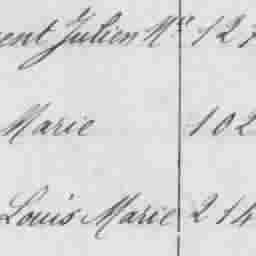 ent Julien Mie 127
Marie 102
Louis Marie 214